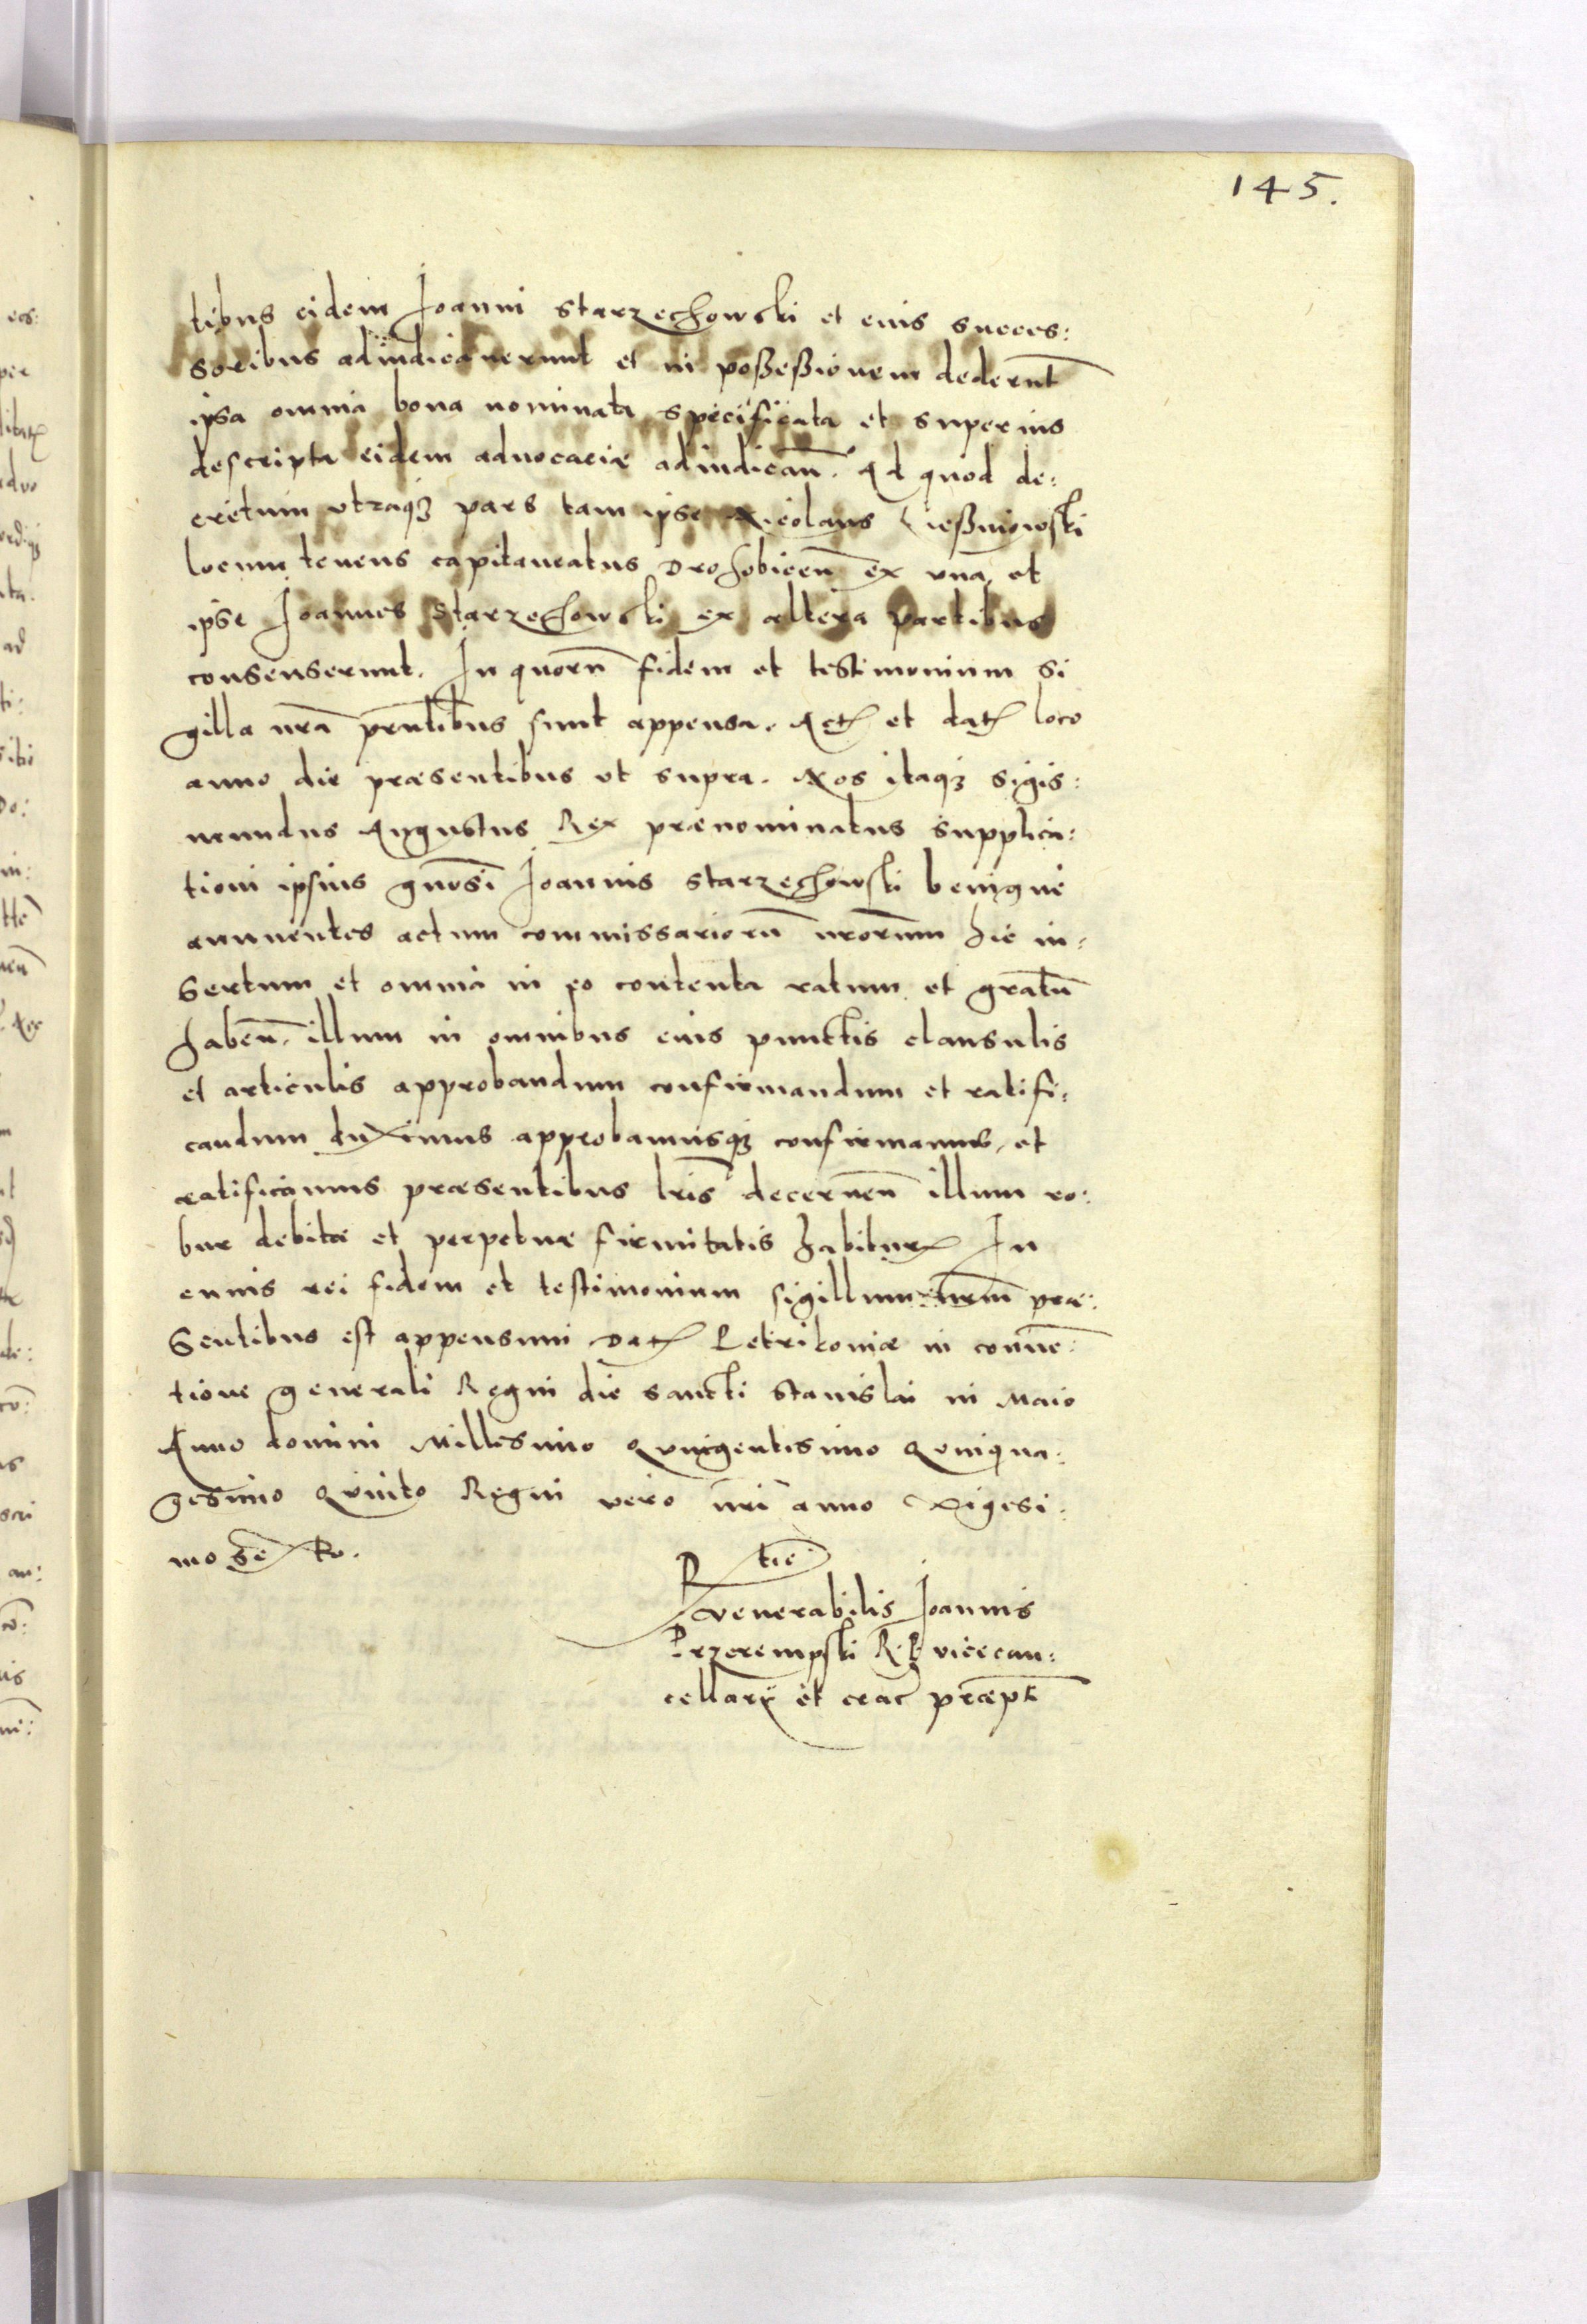 145.
tibus eidem Joanni Starzechowski et eius succes:
soribus adiudicauerunt et in poßeßionem dederūt
ipsa omnia bona nominata specificata et superius
descripta eidem aduocaciæ adiudicań. Ad quod de:
cretum vtraqȝ pars tam ipse Nicolaus
locum tenens capitaneatus Drohobiceń ex vna et
ipse Joannes Starzechowski ex altera partibus
consenserunt. In quorū fidem et testimonium si
gilla nrā prntibus sunt appensa. Act̄ et dat̄ loco
anno die præsentibus vt supra. Nos itaqȝ Sigis:
mundus Augustus Rex prænominatus supplica:
tioni ipsius gnosi Joannis Starzechowski benigne
annuentes actum commissariorū nrorum hic in:
sertum et omnia in eo contenta ratum et gratū
habeń. illum in omnibus eius punctis clausulis
et articulis approbandum confirmandum et ratifi:
candum duximus approbamusqȝ confirmamus et
ratificamus præsentibus lris decerneń illum ro:
bur debitæ et perpetuæ firmitatis habitur̄ In
cuius rei fidem et testimonium sigillum nrm præ:
sentibus est appensum Dat̄ Petrikoviæ in conuē:
tione generali Regni die sancti Stanislai in Maio
Anno domini Millesimo Quingentesimo Quinqua:
gesimo Quinto Regni vero nri anno Vigesi:
mo sexto.
Rtie
venerabilis Joannis
Przerempski R. P. vicecan:
cellarÿ et crac̄ præpt